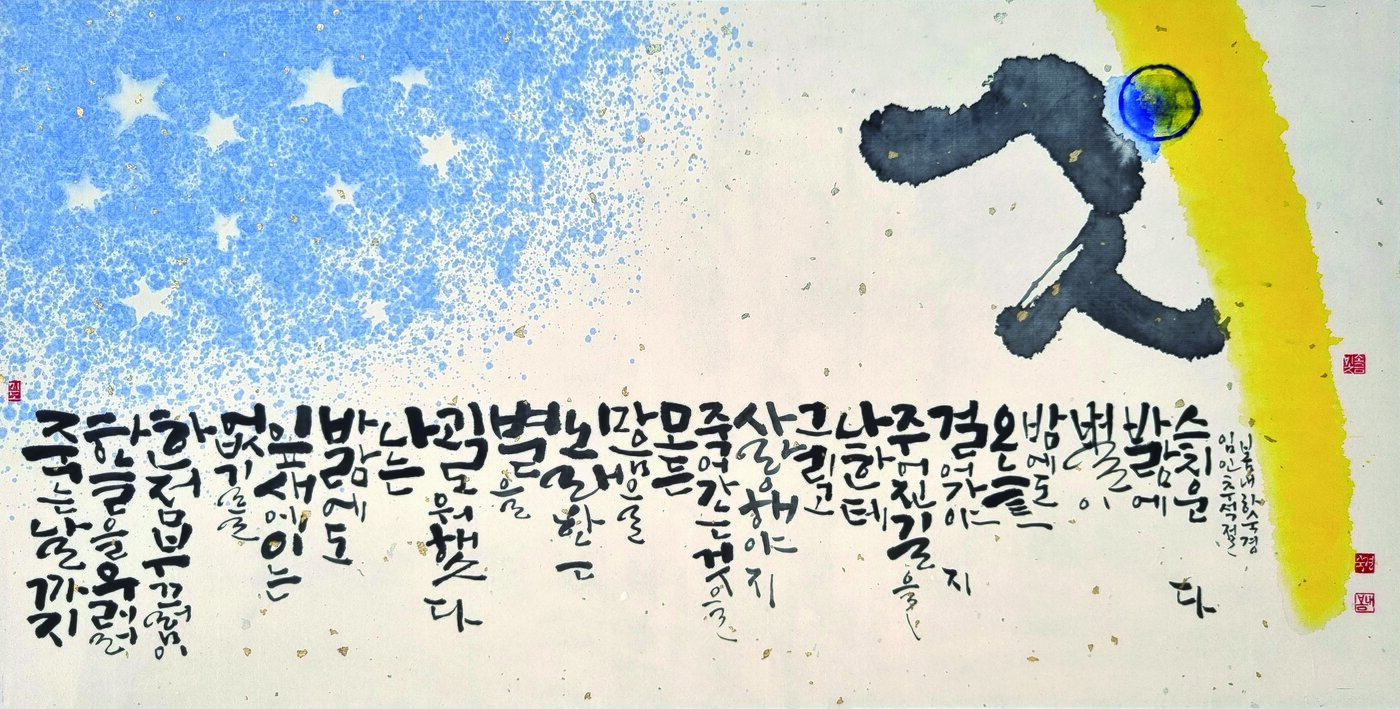 죽는 날까지
하늘을 우러러
한점 부끄럼이
없기를
잎새에 이는
바람에도
나는
괴로워했다
별을
노래하는
마음으로
모든
죽어가는 것을
사랑해야지
그리고
나한테
주어진 길을
걸어가야지
오늘
밤에도
별이
바람에
스치운다
임인추석절
봄내 하숙경